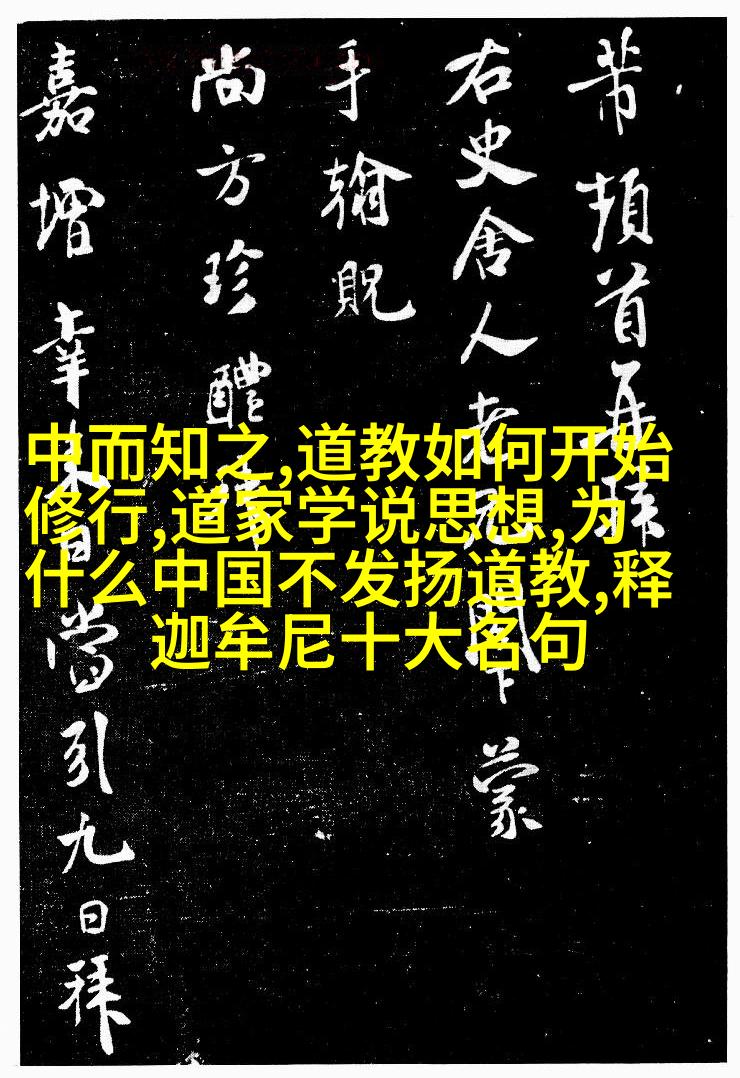 芾頓首再拜
右史舍人老兄下蒙
手翰貺
尚方珍醴
嘉增幸日當引九日拜
中而知之,道教如何开始
修行,道家学说思想,为
什么中国不发扬道教,释
迦牟尼十大名句